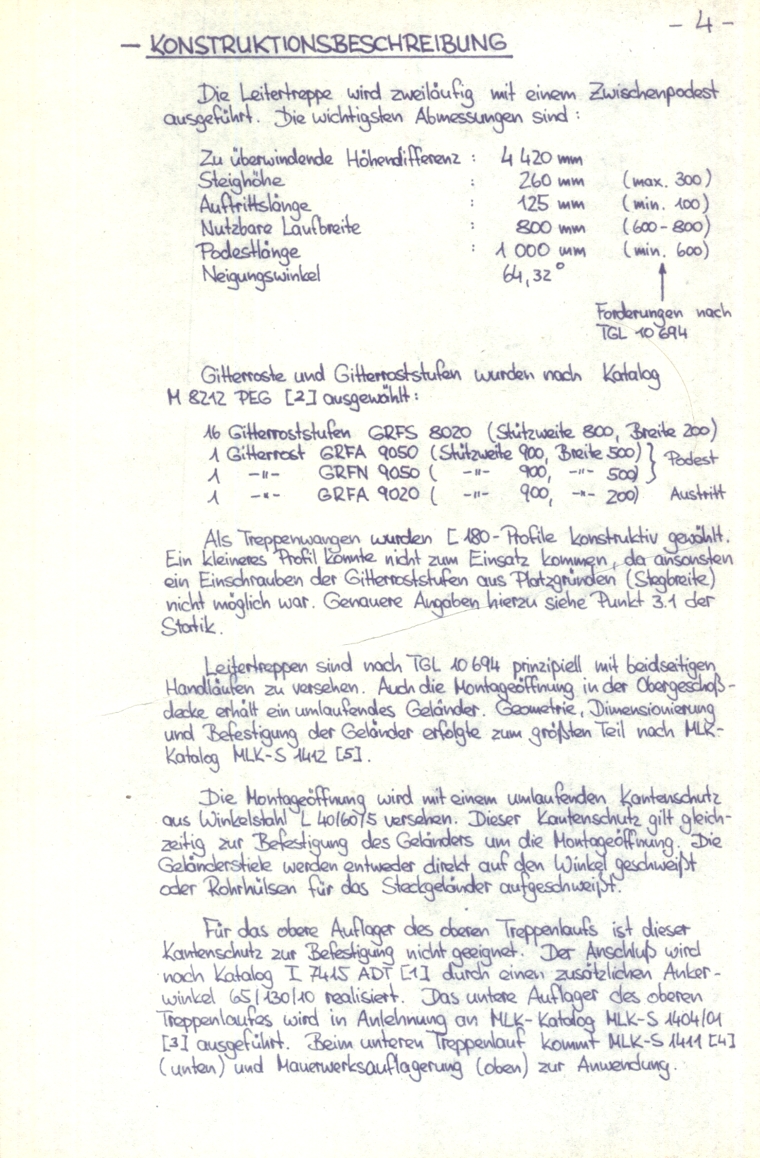 - 4 -
- KONSTRUKTIONSBESCHREIBUNG
Die Leitertreppe wird zweiläufig mit einem Zwischenpodest
ausgeführt. Die wichtigsten Abmessungen sind :
Zu überwindende Höhendifferenz : 4 420 mm
Steighöhe : 260 mm (max. 300)
Auftrittslänge : 125 mm (min. 100)
Nutzbare Laufbreite : 800 mm (600-800)
Podestlänge : 1 000 mm (min. 600)
Neigungswinkel 64,32°
Forderungen nach
TGL 10 694
Gitterroste und Gitterroststufen wurden nach Katalog
M 8212 PEG [2] ausgewählt :
16 Gitterroststufen GRFS 8020 (Stützweite 800, Breite 200)
1 Gitterrost GRFA 9050 (Stützweite 900, Breite 500)
1 -"- GRFN 9050 ( -"- 900, -"- 500) Podest
1 -"- GRFA 9020 ( -"- 900, -"- 200) Austritt
Als Treppenwangen wurden [ 180-Profile konstruktiv gewählt.
Ein kleineres Profil konnte nicht zum Einsatz kommen, da ansonsten
ein Einschrauben der Gitterroststufen aus Platzgründen (Stegbreite)
nicht möglich war. Genauere Angaben hierzu siehe Punkt 3.1 der
Statik.
Leitertreppen sind nach TGL 10 694 prinzipiell mit beidseitigen
Handläufen zu versehen. Auch die Montageöffnung in der Obergeschoß-
decke erhält ein umlaufendes Geländer. Geometrie, Dimensionierung
und Befestigung der Geländer erfolgte zum größten Teil nach MLK-
Katalog MLK-S 1412 [5].
Die Montageöffnung wird mit einem umlaufenden Kantenschutz
aus Winkelstahl L 40/60/5 versehen. Dieser Kantenschutz gilt gleich-
zeitig zur Befestigung des Geländers um die Montageöffnung. Die
Geländerstiele werden entweder direkt auf den Winkel geschweißt
oder Rohrhülsen für das Steckgeländer aufgeschweißt.
Für das obere Auflager des oberen Treppenlaufs ist dieser
Kantenschutz zur Befestigung nicht geeignet. Der Anschluß wird
nach Katalog I 7415 ADT [1] durch einen zusätzlichen Anker-
winkel 65/130/10 realisiert. Das untere Auflager des oberen
Treppenlaufes wird in Anlehnung an MLK-Katalog MLK-S 1404/01
[3] ausgeführt. Beim unteren Treppenlauf kommt MLK-S 1411 [4]
(unten) und Mauerwerksauflagerung (oben) zur Anwendung.